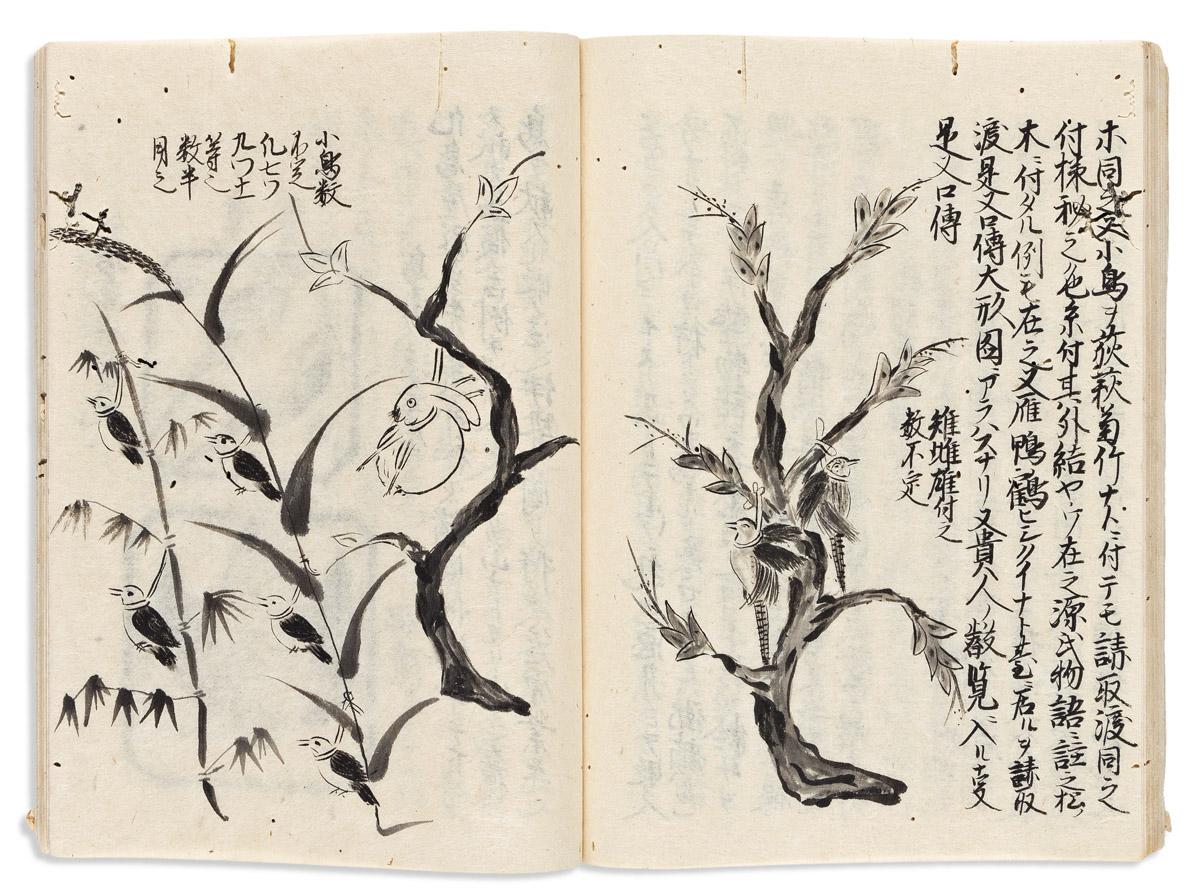 木同之又小鳥ヲ荻萩菊竹ナトニ付テモ請取渡同之
付様秘之ノ色糸付其外結ヤウ在之源氏物語ニ註之松
木ニ付タル例モ在之又雁鴨鶴ヒシクイナト臺ニ居ルヲ請取
渡是又口傳大形圖ニアラハスナリ又貴人ノ叡覧ニ入ル
是又口傳
雉雌雄付之
数不定
小鳥数
不定
九ツ十
等之
数半
用之